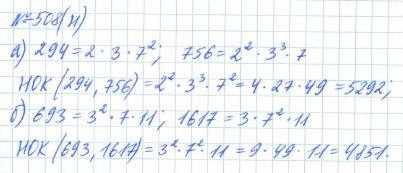 №508(н)
а) 294 = 2 · 3 · 7²; 756 = 2² · 3³ · 7
НОК (294, 756) = 2² · 3³ · 7² = 4 · 27 · 49 = 5292;
б) 693 = 3² · 7 · 11; 1617 = 3 · 7² · 11
НОК (693, 1617) = 3² · 7² · 11 = 9 · 49 · 11 = 4851.